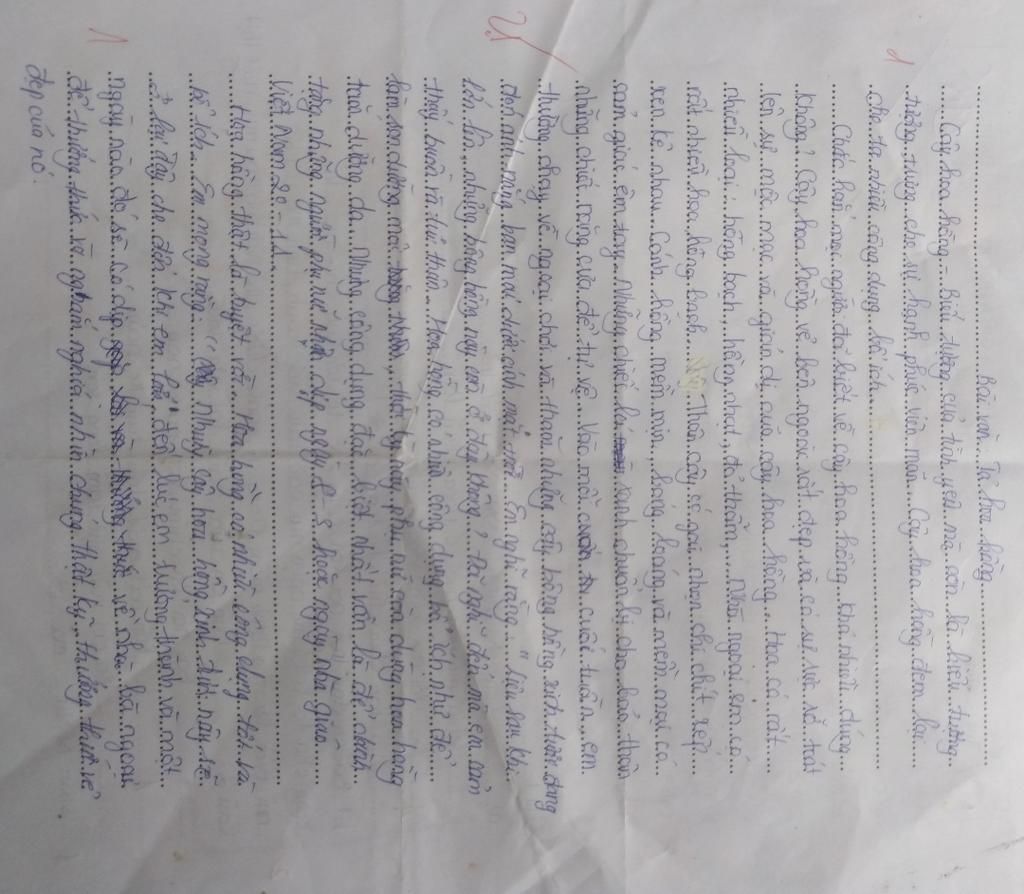 Bài văn: Tả hoa hồng
Cây hoa hồng - Biểu tượng của tình yêu mà còn là biểu tượng
tượng trưng cho sự hạnh phúc viên mãn. Cây hoa hồng đem lại
cho ta nhiều công dụng bổ ích.
1
Chắc hẳn mọi người đã biết về cây hoa hồng khá nhiều đúng
không? Cây hoa hồng vẻ bên ngoài rất đẹp và có sự rực rỡ toát
lên sự mộc mạc và giản dị của cây hoa hồng. Hoa có rất
nhiều loại: hồng bạch, hồng nhạt, đỏ thẫm,... Nhà ngoại em có
rất nhiều hoa hồng bạch. Thân cây có gai nhọn chi chít xếp
xen kẽ nhau. Cánh hồng mềm mịn, bóng loáng và mềm mại có
cảm giác êm tay. Những chiếc lá xanh chuốt lại cho bảo thân
những chiếc răng cưa để tự vệ. Vào mỗi cuối tuần, em
thường chạy về ngoại chơi và thăm những cây bông hồng xinh đang
đợi nụ mấy bạn mới dưới ánh mắt. Em nghĩ rằng: "liệu sau khi
lớn lên, những bông hồng này còn ở đây không? Đã nghĩ đến mà em cảm
thấy buồn và tủi thân. Hoa hồng có nhiều công dụng bổ ích như để
làm son dưỡng môi, thời bây giờ, phụ nữ còn dùng hoa hồng
toàn dưỡng da. Nhưng công dụng đặc biệt nhất vẫn là để dành
tặng những người phụ nữ nhân dịp ngày 8-3 hoặc ngày nhà giáo
Việt Nam 20-11.
Hoa hồng thật là tuyệt vời. Hoa hồng có nhiều công dụng tốt và
bổ ích. Em mong rằng: "những cây hoa hồng xinh tươi này sẽ
ở lại đây cho đến khi em lớn, đến lúc em trưởng thành và một
ngày nào đó sẽ có dịp về nhà bà ngoại
để thưởng thức và ngắm nghía nhìn chúng thật kỹ, thưởng thức vẻ
đẹp của nó.
1